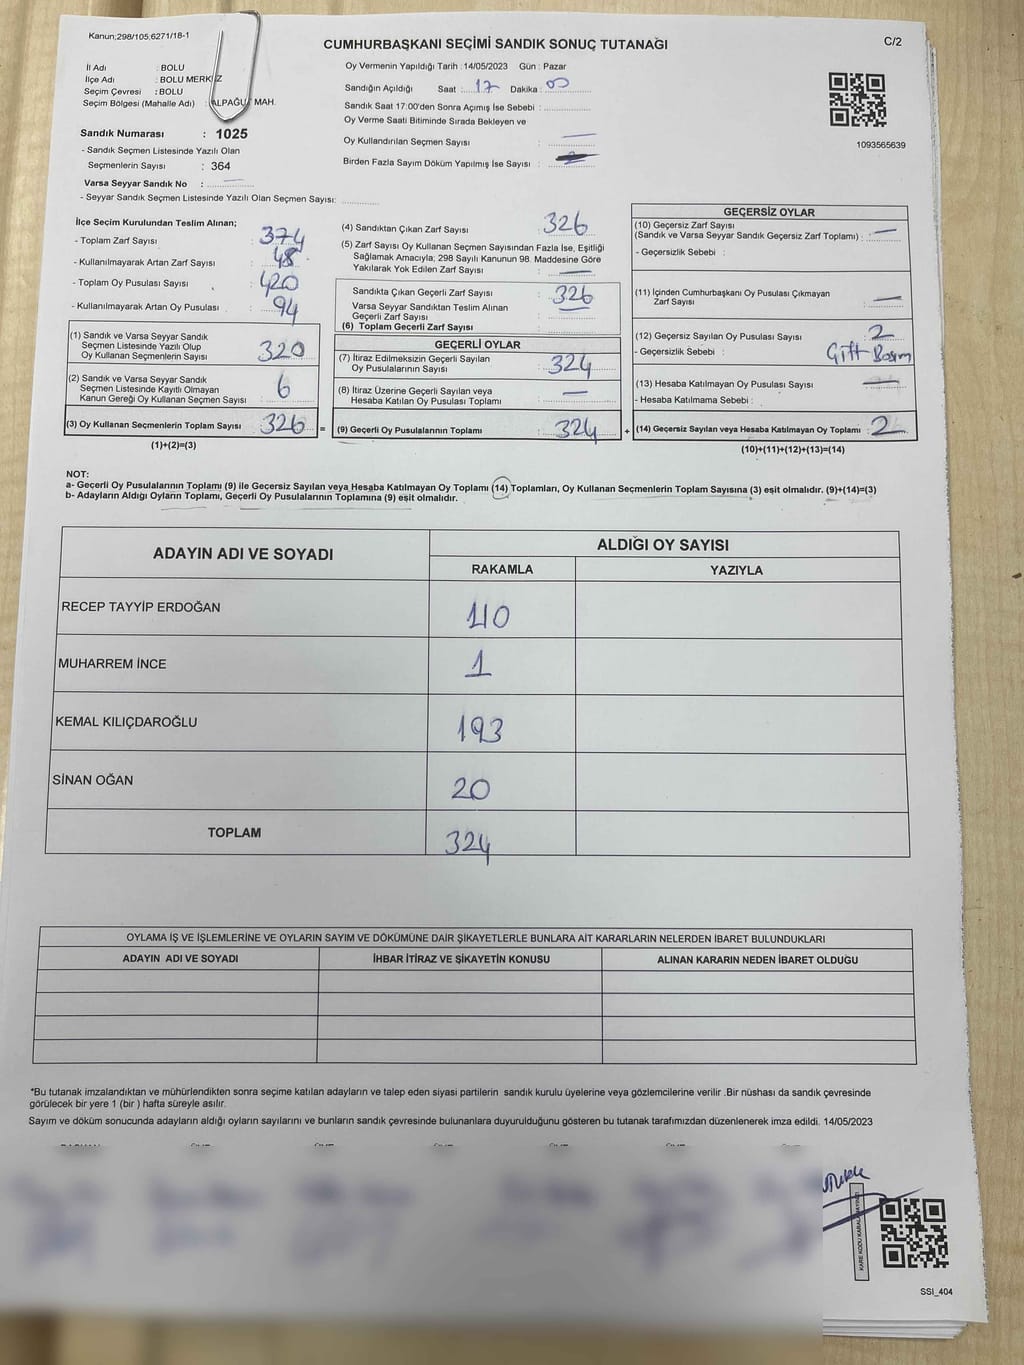 Kanun:298/105;6271/18-1
CUMHURBAŞKANI SEÇİMİ SANDIK SONUÇ TUTANAĞI
C/2
İl Adı : BOLU
İlçe Adı : BOLU MERKEZ
Seçim Çevresi : BOLU
Seçim Bölgesi (Mahalle Adı) : ALPAĞUT MAH.
Sandık Numarası : 1025
- Sandık Seçmen Listesinde Yazılı Olan
Seçmenlerin Sayısı : 364
Varsa Seyyar Sandık No :
- Seyyar Sandık Seçmen Listesinde Yazılı Olan Seçmen Sayısı:
Oy Vermenin Yapıldığı Tarih :14/05/2023 Gün : Pazar
Sandığın Açıldığı Saat : 17 Dakika : 00
Sandık Saat 17:00'den Sonra Açımış İse Sebebi :
Oy Verme Saati Bitiminde Sırada Bekleyen ve
Oy Kullandırılan Seçmen Sayısı : —
Birden Fazla Sayım Döküm Yapılmış İse Sayısı :
1093565639
İlçe Seçim Kurulundan Teslim Alınan;
- Toplam Zarf Sayısı : 374
- Kullanılmayarak Artan Zarf Sayısı : 48
- Toplam Oy Pusulası Sayısı : 420
- Kullanılmayarak Artan Oy Pusulası : 94
(1) Sandık ve Varsa Seyyar Sandık
Seçmen Listesinde Yazılı Olup
Oy Kullanan Seçmenlerin Sayısı : 320
(2) Sandık ve Varsa Seyyar Sandık
Seçmen Listesinde Kayıtlı Olmayan
Kanun Gereği Oy Kullanan Seçmen Sayısı : 6
(3) Oy Kullanan Seçmenlerin Toplam Sayısı : 326
(1)+(2)=(3)
(4) Sandıktan Çıkan Zarf Sayısı : 326
(5) Zarf Sayısı Oy Kullanan Seçmen Sayısından Fazla İse, Eşitliği
Sağlamak Amacıyla; 298 Sayılı Kanunun 98. Maddesine Göre
Yakılarak Yok Edilen Zarf Sayısı : —
Sandıkta Çıkan Geçerli Zarf Sayısı : 326
Varsa Seyyar Sandıktan Teslim Alınan
Geçerli Zarf Sayısı : —
(6) Toplam Geçerli Zarf Sayısı :
GEÇERLİ OYLAR
(7) İtiraz Edilmeksizin Geçerli Sayılan
Oy Pusulalarının Sayısı : 324
(8) İtiraz Üzerine Geçerli Sayılan veya
Hesaba Katılan Oy Pusulası Toplamı : —
= (9) Geçerli Oy Pusulalarının Toplamı : 324
GEÇERSİZ OYLAR
(10) Geçersiz Zarf Sayısı
(Sandık ve Varsa Seyyar Sandık Geçersiz Zarf Toplamı) : —
- Geçersizlik Sebebi :
(11) İçinden Cumhurbaşkanı Oy Pusulası Çıkmayan
Zarf Sayısı : —
(12) Geçersiz Sayılan Oy Pusulası Sayısı : 2
- Geçersizlik Sebebi : Çift Basım
(13) Hesaba Katılmayan Oy Pusulası Sayısı : —
- Hesaba Katılmama Sebebi :
+ (14) Geçersiz Sayılan veya Hesaba Katılmayan Oy Toplamı : 2
(10)+(11)+(12)+(13)=(14)
NOT:
a- Geçerli Oy Pusulalarının Toplamı (9) ile Geçersiz Sayılan veya Hesaba Katılmayan Oy Toplamı (14) Toplamları, Oy Kullanan Seçmenlerin Toplam Sayısına (3) eşit olmalıdır. (9)+(14)=(3)
b- Adayların Aldığı Oyların Toplamı, Geçerli Oy Pusulalarının Toplamına (9) eşit olmalıdır.
ADAYIN ADI VE SOYADI
ALDIĞI OY SAYISI
RAKAMLA YAZIYLA
RECEP TAYYİP ERDOĞAN 110
MUHARREM İNCE 1
KEMAL KILIÇDAROĞLU 193
SİNAN OĞAN 20
TOPLAM 324
OYLAMA İŞ VE İŞLEMLERİNE VE OYLARIN SAYIM VE DÖKÜMÜNE DAİR ŞİKAYETLERLE BUNLARA AİT KARARLARIN NELERDEN İBARET BULUNDUKLARI
ADAYIN ADI VE SOYADI İHBAR İTİRAZ VE ŞİKAYETİN KONUSU ALINAN KARARIN NEDEN İBARET OLDUĞU
*Bu tutanak imzalandıktan ve mühürlendikten sonra seçime katılan adayların ve talep eden siyasi partilerin sandık kurulu üyelerine veya gözlemcilerine verilir .Bir nüshası da sandık çevresinde
görülecek bir yere 1 (bir ) hafta süreyle asılır.
Sayım ve döküm sonucunda adayların aldığı oyların sayılarını ve bunların sandık çevresinde bulunanlara duyurulduğunu gösteren bu tutanak tarafımızdan düzenlenerek imza edildi. 14/05/2023
SSI_404